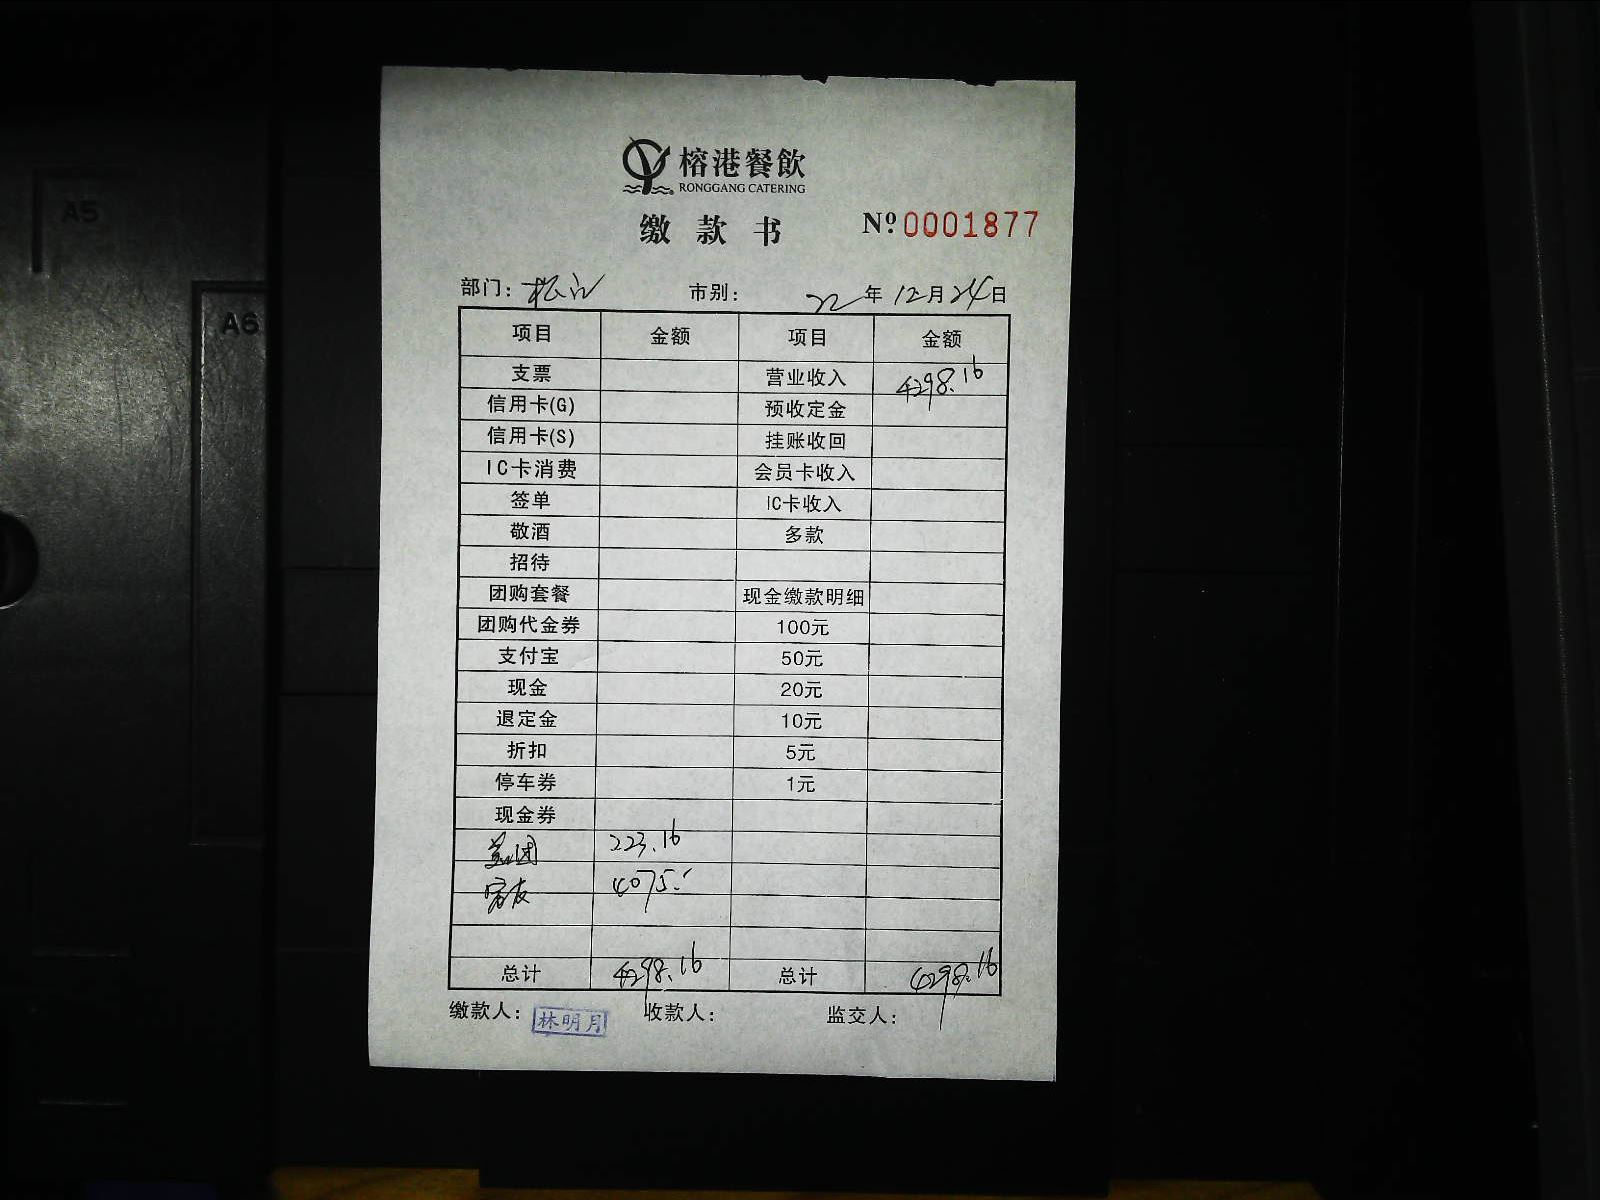 A5
A6
榕港餐飲
RONGGANG CATERING
缴款书 Nº 0001877
部门: 市别: 22年12月24日
项目 金额 项目 金额
支票 营业收入 4298.16
信用卡(G) 预收定金
信用卡(S) 挂账收回
IC卡消费 会员卡收入
签单 IC卡收入
敬酒 多款
招待
团购套餐 现金缴款明细
团购代金券 100元
支付宝 50元
现金 20元
退定金 10元
折扣 5元
停车券 1元
现金券
美团 223.16
客友 4075.-
总计 4298.16 总计 4298.16
缴款人: 林明月 收款人: 监交人: